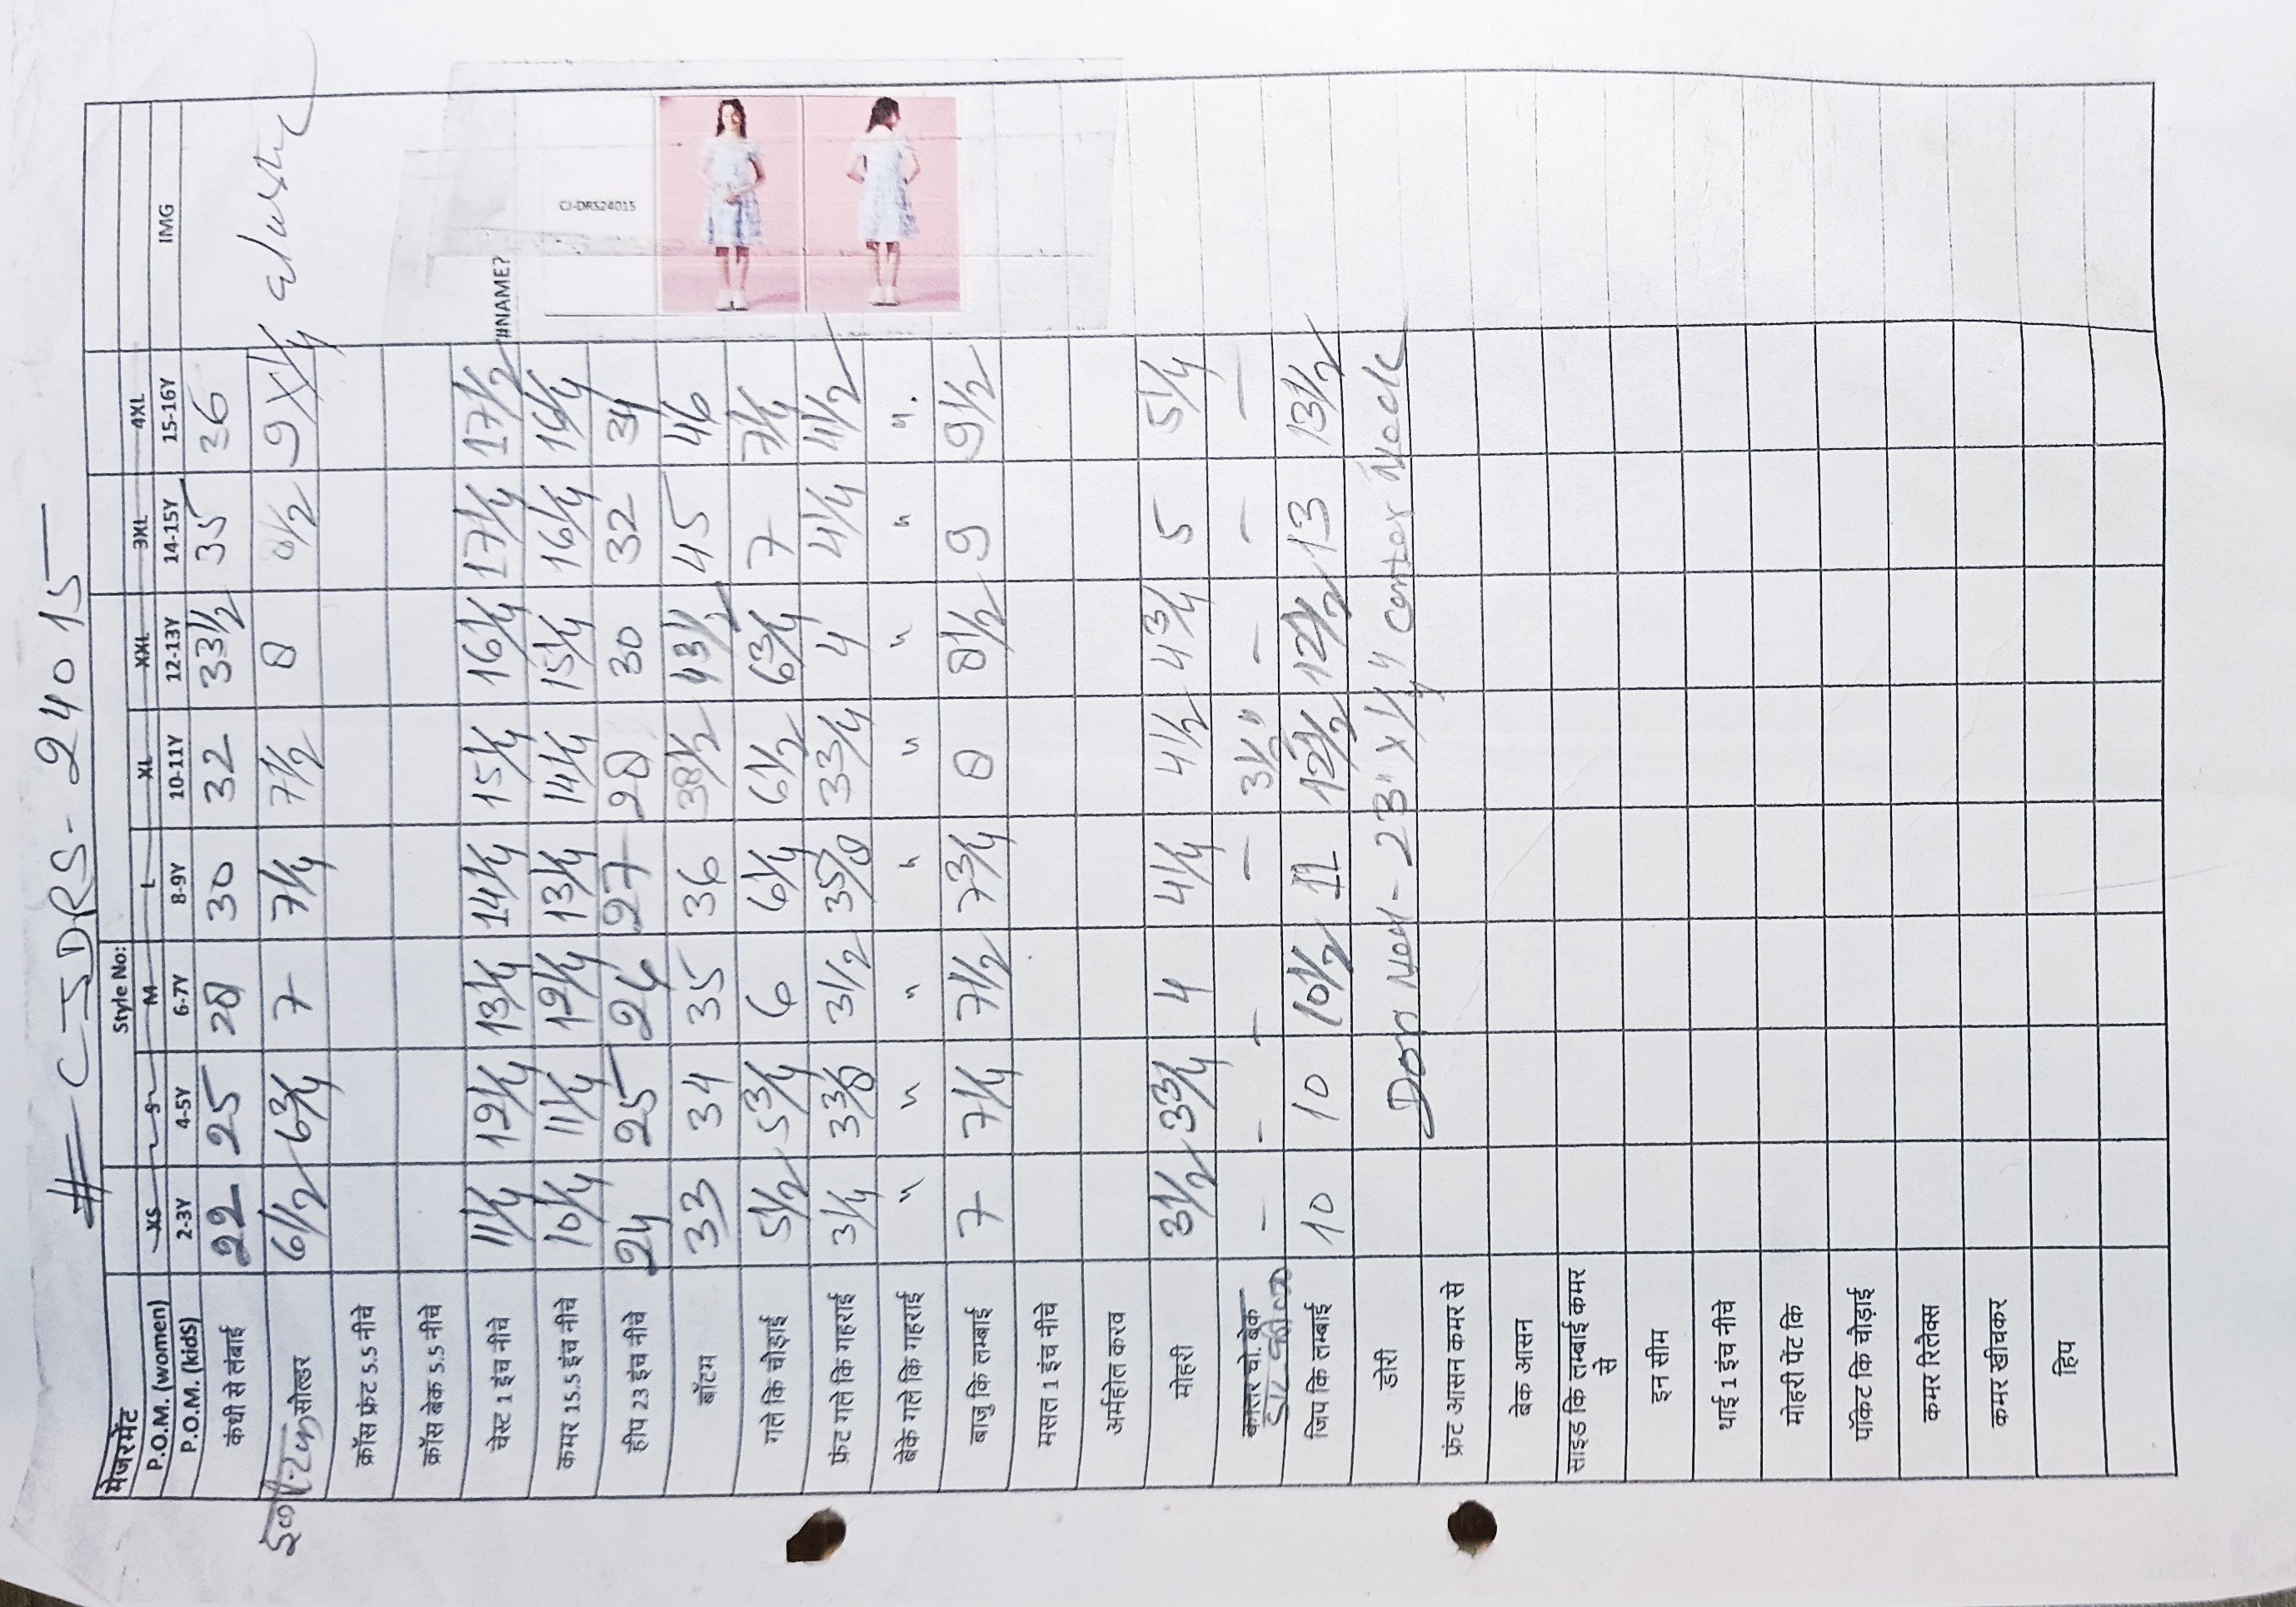 # CJDRS-24015
Style No:
मेजरमेंट
P.O.M. (women) XS S M L XL XXL 3XL 4XL
P.O.M. (kidS) 2-3Y 4-5Y 6-7Y 8-9Y 10-11Y 12-13Y 14-15Y 15-16Y IMG
कंधी से लंबाई 22 25 28 30 32 33 1/2 35 36
इलास्टिक सोल्डर 6 1/2 6 3/4 7 7 1/4 7 1/2 8 8 1/2 9 X 1/4 elastic
क्रॉस फ्रंट 5.5 नीचे
क्रॉस बेक 5.5 नीचे
चेस्ट 1 इंच नीचे 11 1/4 12 1/4 13 1/4 14 1/4 15 1/4 16 1/4 17 1/4 17 1/2
#NAME?
कमर 15.5 इंच नीचे 10 1/4 11 1/4 12 1/4 13 1/4 14 1/4 15 1/4 16 1/4 16 1/4
CJ-DRS24015
हीप 23 इंच नीचे 24 25 26 27 28 30 32 34
बॉटम 33 34 35 36 38 1/2 43 1/2 45 46
गले कि चौड़ाई 5 1/2 5 3/4 6 6 1/4 6 1/2 6 3/4 7 7 1/4
फ्रंट गले कि गहराई 3 1/4 3 3/8 3 1/2 3 5/8 3 3/4 4 4 1/4 4 1/2
बेके गले कि गहराई " " " " " " " "
बाजु कि लम्बाई 7 7 1/4 7 1/2 7 3/4 8 8 1/2 9 9 1/2
मसल 1 इंच नीचे
अर्महोल करव
मोहरी 3 1/2 3 3/4 4 4 1/4 4 1/2 4 3/4 5 5 1/4
कालर चो. बेक - - - - - - -
जिप कि लम्बाई 10 10 10 1/2 11 12 1/2 12 1/2 13 13 1/2
डोरी 23" X 1/4" center Neck
फ्रंट आसन कमर से
बेक आसन
साइड कि लम्बाई कमर
से
इन सीम
थाई 1 इंच नीचे
मोहरी पेंट कि
पॉकेट कि चौड़ाई
कमर रिलैक्स
कमर खीचकर
हिप